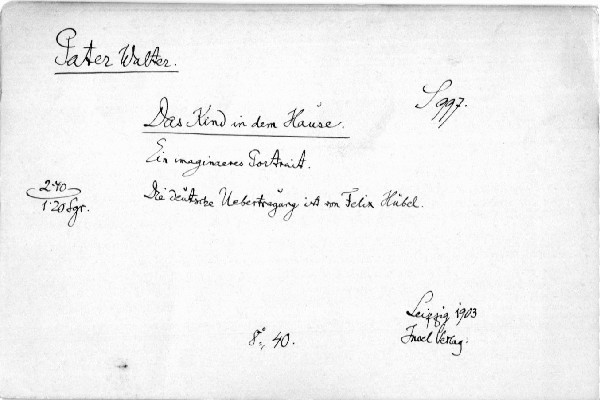 Pater Walter.
S 997.
Das Kind in dem Hause.
Ein imaginaeres Portrait.
2·40
Die deutsche Uebertragung ist von Felix Hübel.
1·20 Sgr.
Leipzig 1903
Insel Verlag.
8°, 40.